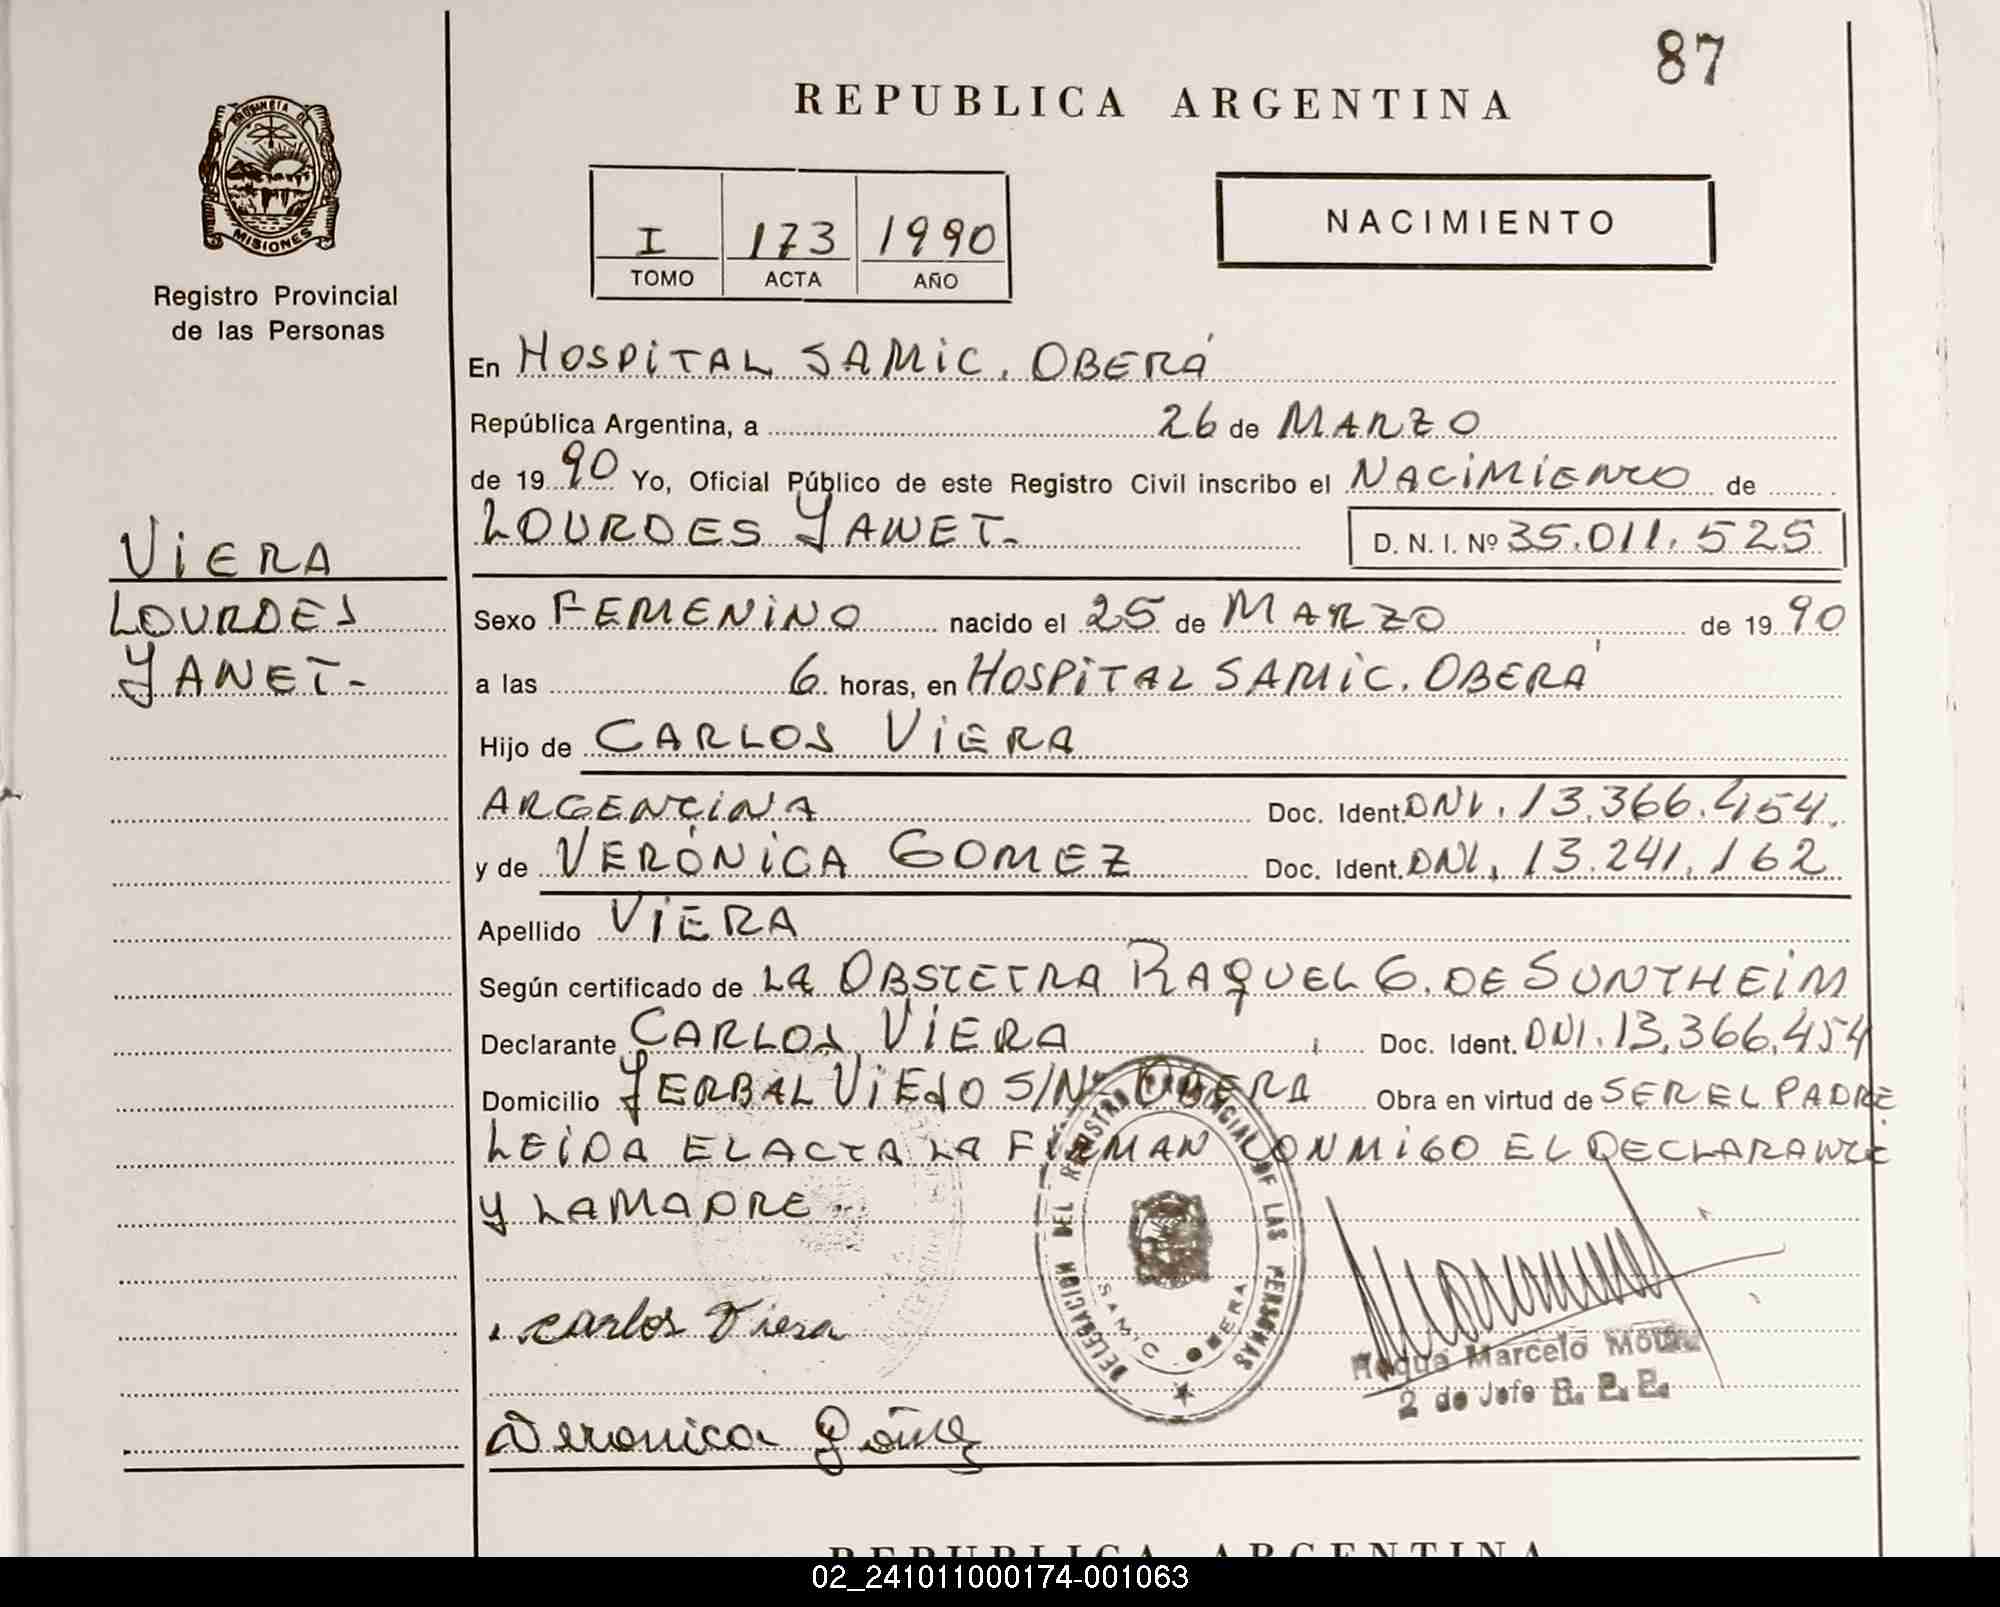 87
REPUBLICA ARGENTINA
PROVINCIA DE
MISIONES
Registro Provincial
de las Personas
I 173 1990
TOMO ACTA AÑO
NACIMIENTO
En HOSPITAL SAMIC. OBERÁ
República Argentina, a 26 de MARZO
de 1990 Yo, Oficial Público de este Registro Civil inscribo el NACIMIENTO de
LOURDES YANET.- D. N. I. Nº 35.011.525
VIERA
LOURDES
YANET.-
Sexo FEMENINO nacido el 25 de MARZO de 1990
a las 6 horas, en HOSPITAL SAMIC. OBERÁ
Hijo de CARLOS VIERA
ARGENTINA Doc. Ident. DNI. 13.366.454.
y de VERÓNICA GOMEZ Doc. Ident. DNI. 13.241.162
Apellido VIERA
Según certificado de LA OBSTETRA RAQUEL G. DE SUNTHEIM
Declarante CARLOS VIERA Doc. Ident. DNI. 13.366.454
Domicilio YERBAL VIEJO S/Nº OBERA Obra en virtud de SER EL PADRE
LEIDA EL ACTA LA FIRMAN CONMIGO EL DECLARANTE
Y LA MADRE.
DELEGACION DEL REGISTRO PROVINCIAL DE LAS PERSONAS
SAMIC. OBERA
Carlos Viera
Marcelo
2 do Jefe R. P. P.
Veronica Gómez
REPUBLICA ARGENTINA
02_241011000174-001063